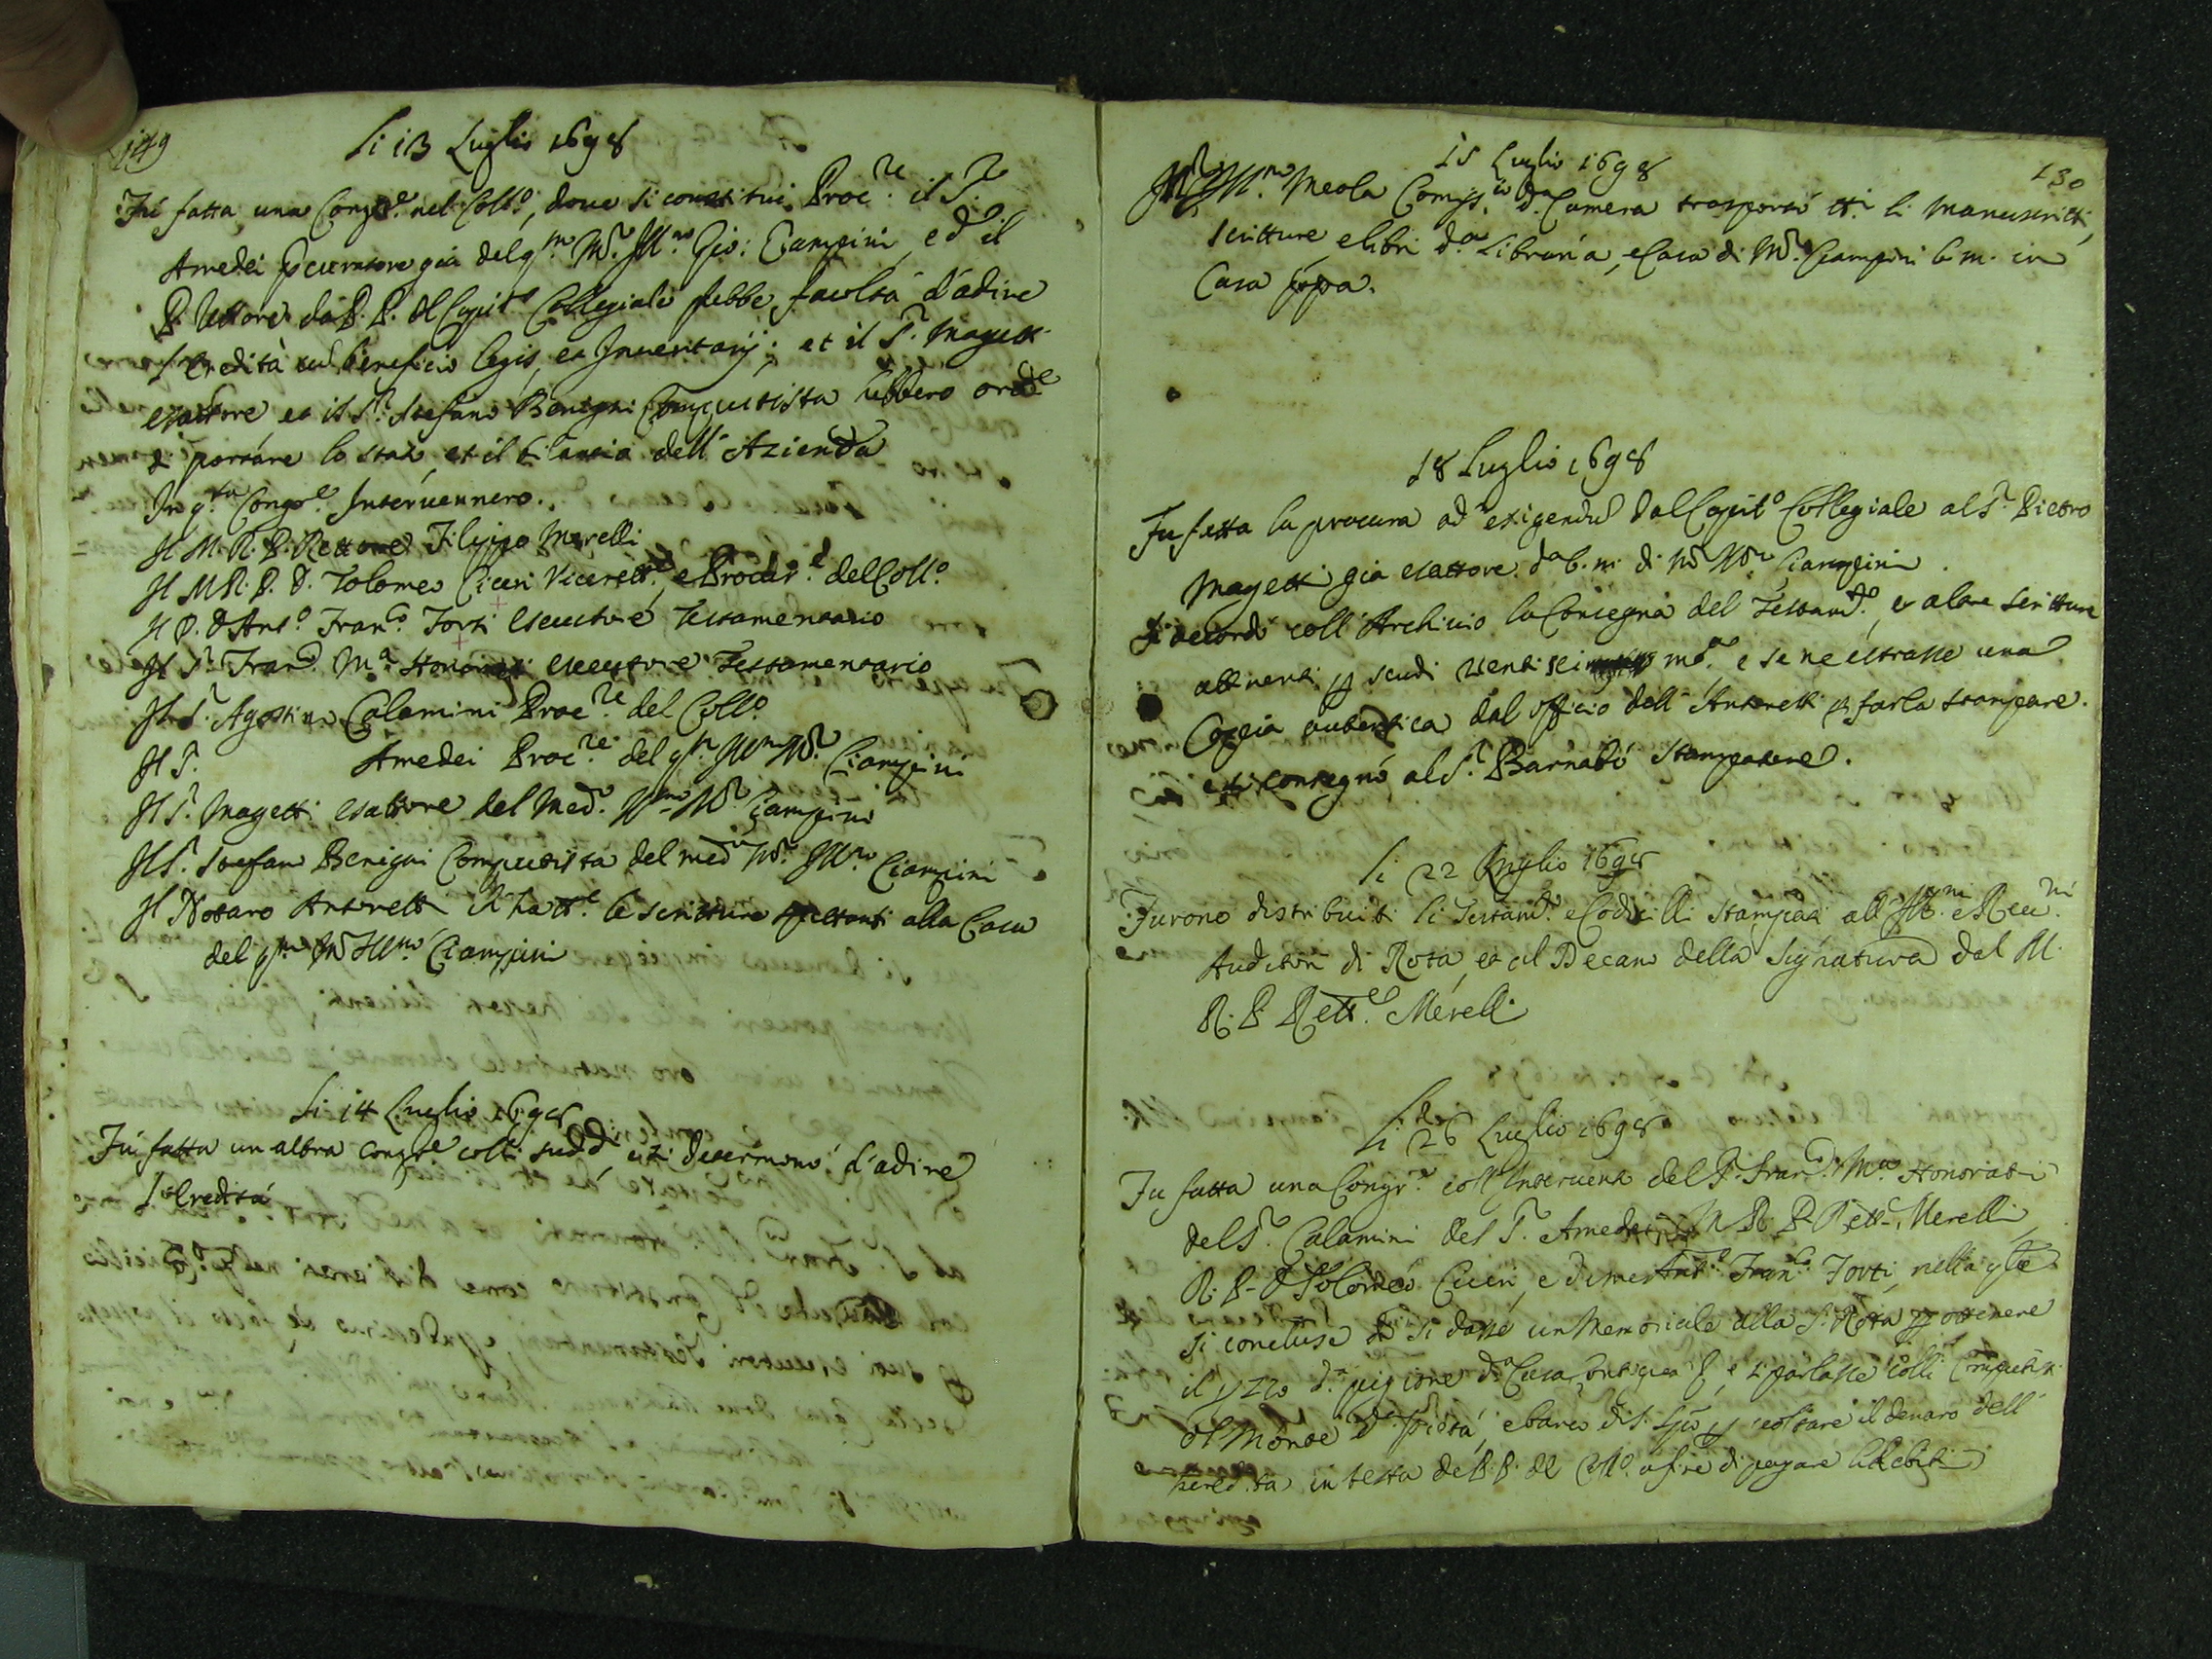 149
Li 13 Luglio 1698
Fú fatta una Congre. nel Collo, doue si constitui Procre. il Sr.
Amedei Pcuratore gia del qm. Mr. Illmo. Gio: Ciampini, ed il
P. Rettore da P. P. del Capito Collegiale hebbe facoltà d'adire
l'eredità cum beneficio legis, et Inuentarij; et il Sr. Magetti
esattore, et il Sr. Stefano Benigni Computista hebbero orde
di portare lo stato, et il bilancio dell'Azienda
In qta Congre. Interuennero.
Il M. R. P. Rettore Filippo Merelli
Il M R. P. D. Tolomeo Ciceri Viceretre, e Procure. del Collo.
Il P. D Anto. Franco. Torti esecutore Testamentario
Il Sr. Franco. Ma. Honorati esecutore Testamentario
Il Sr. Agostino Calamini Procre. del Collo.
Il Sr. Amedei Procre. del qm. Illmo Mr. Ciampini
Il Sr. Magetti esattore del medo. Illmo Mr. Ciampini
Il Sr. Stefano Benigni Computista del medo Mr. Illmo. Ciampini
Il Notaro Antonetti le scritture spettanti alla Casa
del qm. Mr Illmo. Ciampini
Li 14 Luglio 1698
Fú fatta un altra congre colli sudd, e si determinò d'adire
l'Eredità
130
15 Luglio 1698
Mr. Illmo. Meola Comiss. da Camera trasportò tti. li manuscritti,
scritture, e libri da Libraria, e Casa di Mr. Ciampini b. m. in
Casa ppa.
18 Luglio 1698
Fu fatta la procura ad exigendum dal Capito Collegiale al Sr. Pietro
Magetti gia esattore da b. m. di Mr Illmo Ciampini.
Si accordò coll'Archiuio la Consegna del Testamto, et altre scritture
attinenti p scudi uentisei mta. e se ne estrasse una
Coppia autentica dal officio dell'Antonetti p farla stampare.
e si consegnò al Sr. Barnabò Stampatore.
Li 22 Luglio 1698
Furono distribuiti li Testamti. e Codicilli stampati all Illmi. e Reumi.
Auditori di Rota, et al Decano della Signatura dal M.
R. P. Rette. Merelli
Li 26 Luglio 1698
Fu fatta una Congre. coll'Interuento del Sr. Franco. Ma. Honorati
del Sr. Calamini del Sr. Amedei, M. R. P. Rett. Merelli,
R. P. D Tolomeo Ciceri, e di me Anto. Franco. Torti, nella qle
si concluse che si dasse un Memoriale alla S. Rota p ottenere
il da pigione da Casa contigua, e si parlasse colli Computisti
del Monte da pietà, e banco di S. Spto p uoltare il denaro dell'
heredità in testa de P. P. del Collo. a fine di pagare li debiti